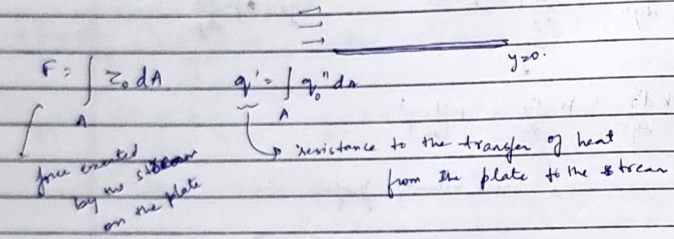 y=0.
F = ∫ τ₀ dA   q' = ∫ q₀'' dA
A   A
force exerted
by the stream
on the plate
resistance to the transfer of heat
from the plate to the stream